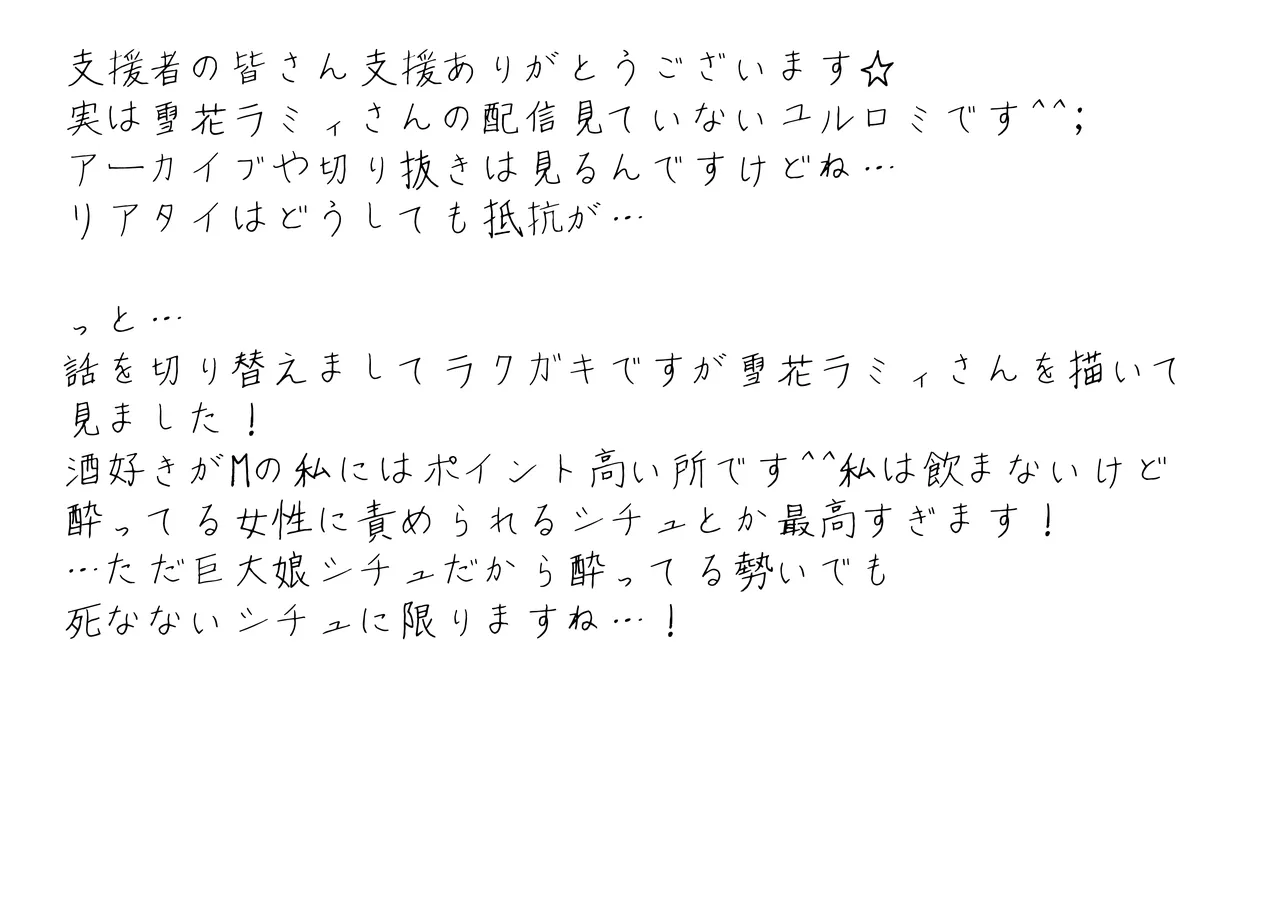 支援者の皆さん支援ありがとうございます☆
実は雪花ラミィさんの配信見ていないユルロミです^^;
アーカイブや切り抜きは見るんですけどね…
リアタイはどうしても抵抗が…
っと…
話を切り替えましてラクガキですが雪花ラミィさんを描いて
見ました！
酒好きがMの私にはポイント高い所です^^私は飲まないけど
酔ってる女性に責められるシチュとか最高すぎます！
…ただ巨大娘シチュだから酔ってる勢いでも
死なないシチュに限りますね…！